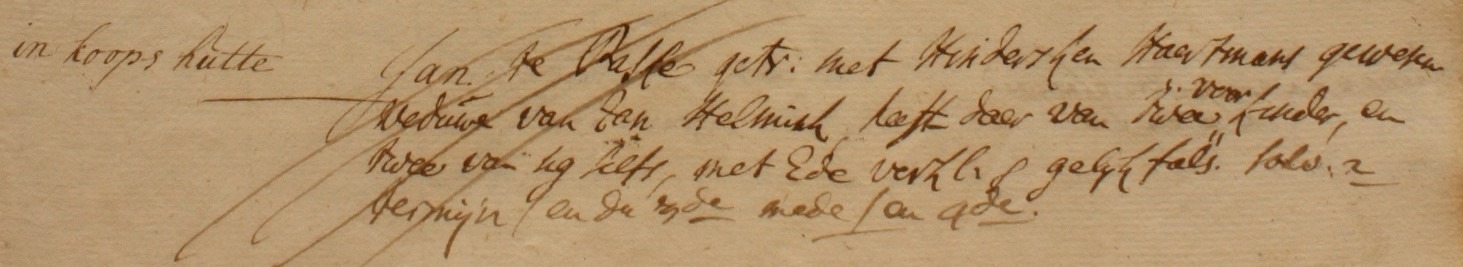 in koops hütte
Jan te Passe getr: met Hinderşken Haertmans gewesen
weduwe van Jan Helmich heeft daer van twee voor kinder, en
twee van sig selfs, met Ede verkl: gelykfals. solv. 2
termijn en du 3de mede en 4de.